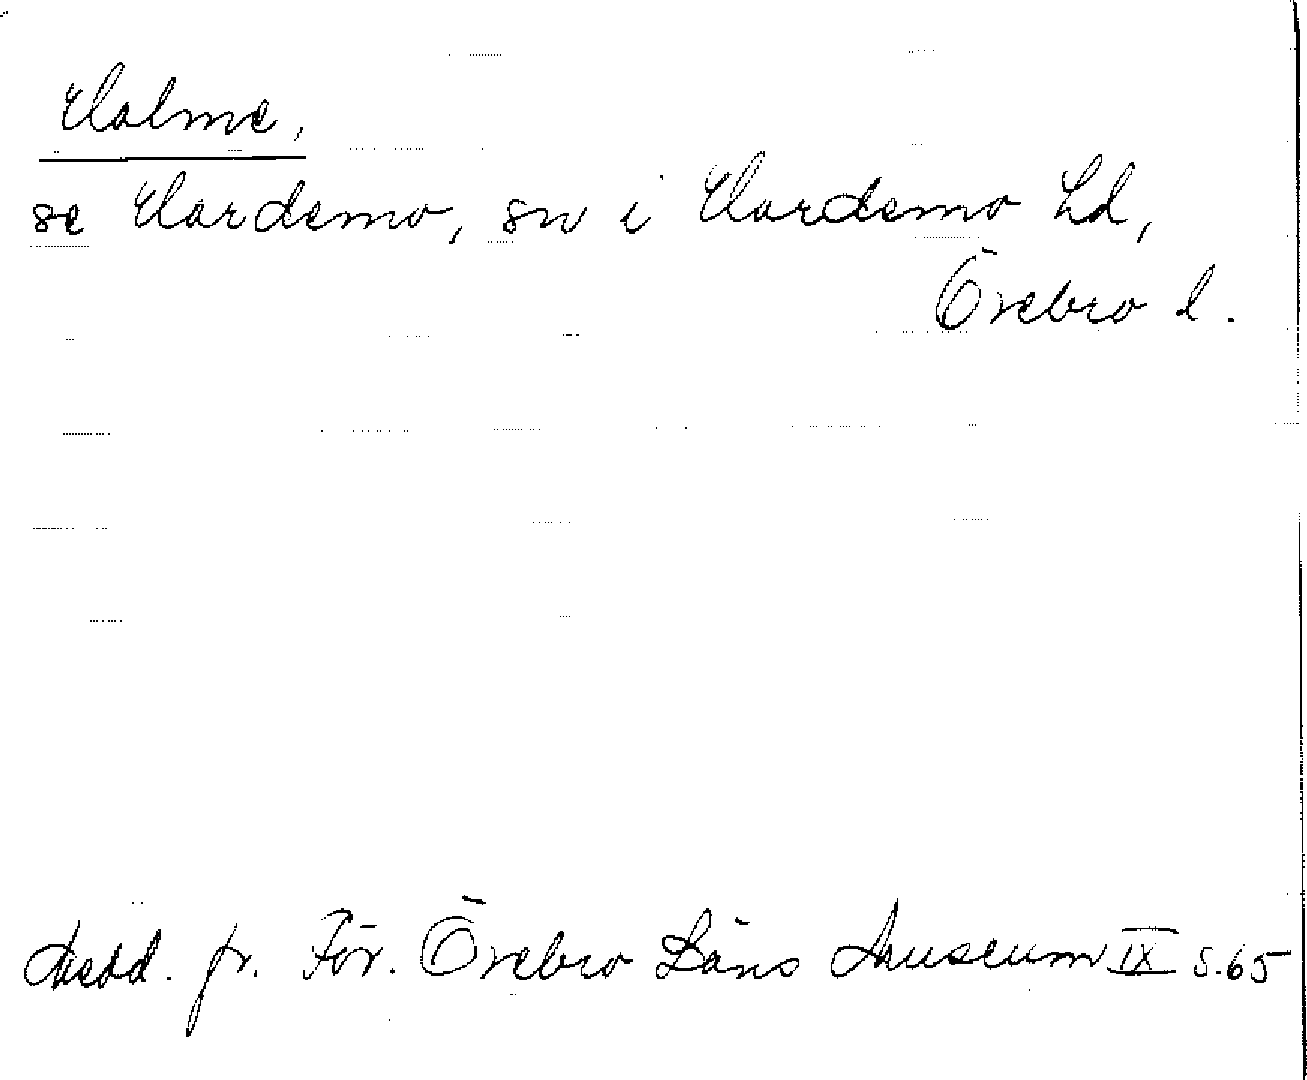 Halme,
se Hardemo, sn i Hardemo hd,
Örebro l.
Medd. fr. För. Örebro Läns Museum IX s. 65